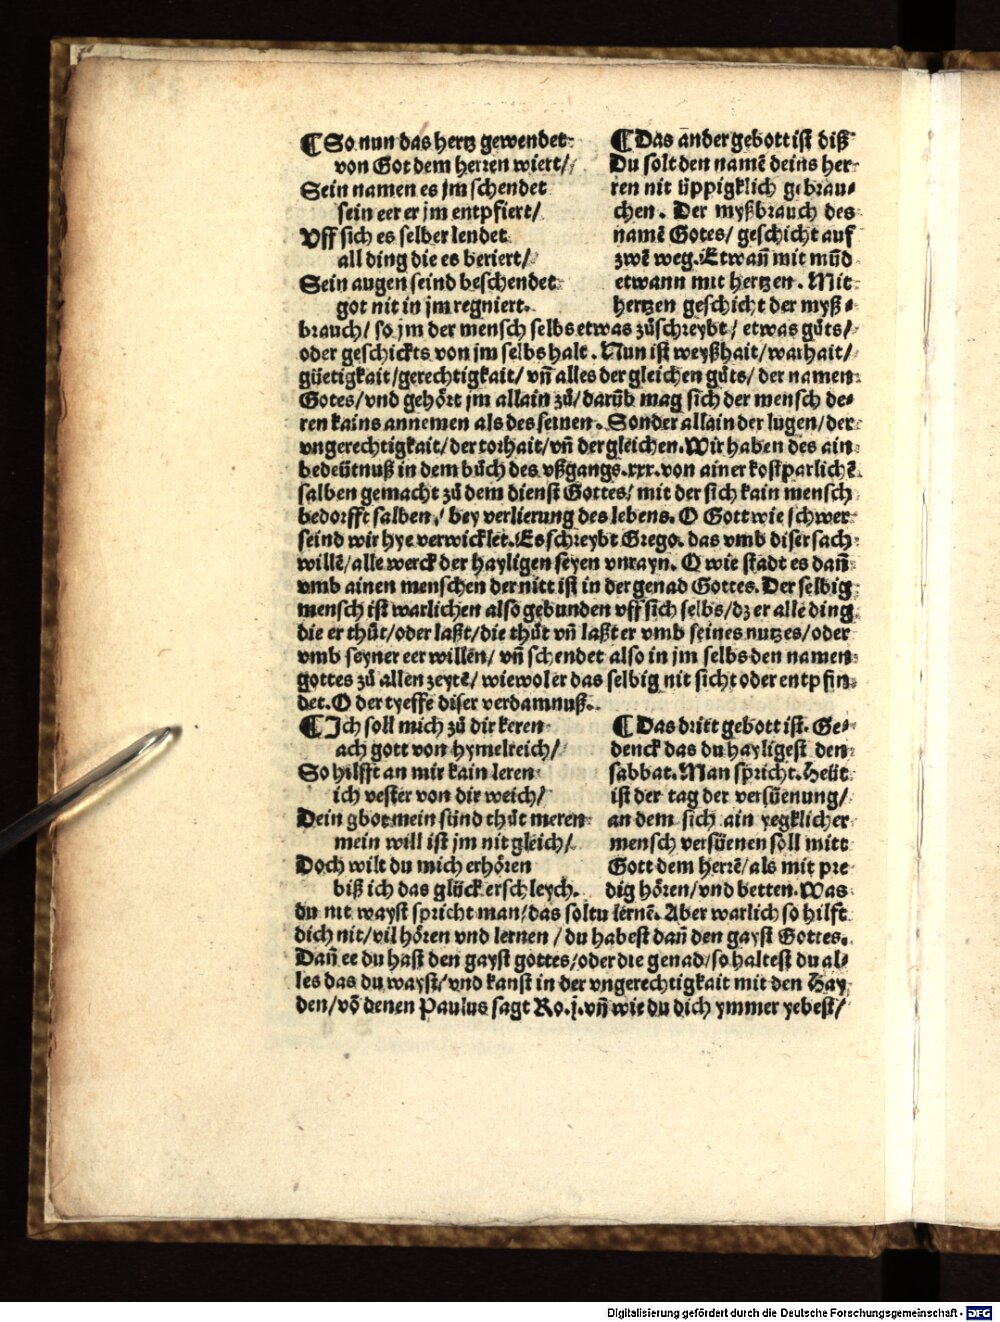 ¶ So nun das hertz gewendet
von Got dem herren wiert/
Sein namen es jm schendet
sein eer er jm entpfiert/
Uff sich es selber lendet
all ding die es beriert/
Sein augen seind beschendet
got nit in jm regniert.
¶ Das ander gebott ist diß
Du solt den namē deins her-
ren nit üppigklich gebrau-
chen. Der myßbrauch des
namē Gotes/ geschicht auf
zwē weg. Etwañ mit mūd
etwann mit hertzen. Mit
hertzen geschicht der myß-
brauch/ so jm der mensch selbs etwas zůschreybt/ etwas gůts/
oder geschickts von jm selbs halt. Nun ist weyßhait/warhait/
güetigkait/gerechtigkait/ vñ alles der gleichen gůts/ der namen
Gotes/vnd gehört jm allain zů/darūb mag sich der mensch de-
ren kains annemen als des seinen. Sonder allain der lugen/der
vngerechtigkait/der torhait/vñ der gleichen. Wir haben des ain
bedeütnuß in dem bůch des vßgangs.xxx.von ainer kostparlichē
salben gemacht zů dem dienst Gottes/ mit der sich kain mensch
bedorfft salben/ bey verlierung des lebens. O Gott wie schwer
seind wir hye verwicklet. Es schreybt Grego. das vmb diser sach
willē/alle werck der hayligen seyen vnrayn. O wie stadt es dañ
vmb ainen menschen der nitt ist in der genad Gottes. Der selbig
mensch ist warlichen also gebunden vff sich selbs/dz er alle ding
die er thůt/oder laßt/die thůt vñ laßt er vmb seines nutzes/oder
vmb seyner eer willen/ vñ schendet also in jm selbs den namen
gottes zů allen zeytē/ wiewol er das selbig nit sicht oder entpfin-
det. O der tyeffe diser verdamnuß.
¶ Ich soll mich zů dir keren
ach gott von hymelreich/
So hilfft an mir kain leren
ich vester von dir weich/
Dein gbot mein sünd thůt meren
mein will ist jm nit gleich/
Doch wilt du mich erhören
biß ich das glück erschleych.
¶ Das dritt gebott ist. Ge-
denck das du hayligest den
sabbat. Man spricht. Heüt
ist der tag der versüenung/
an dem sich ain yegklicher
mensch versüenen soll mitt
Gott dem herrē/als mit pre
dig hören/vnd betten. Was
du nit wayst spricht man/das soltu lernē. Aber warlich so hilft
dich nit/vil hören vnd lernen/ du habest dañ den gayst Gottes.
Dañ ee du hast den gayst gottes/oder die genad/so haltest du al-
les das du wayst/vnd kanst in der vngerechtigkait mit den Hay
den/vō denen Paulus sagt Ro.j.vñ wie du dich ymmer yebest/
Digitalisierung gefördert durch die Deutsche Forschungsgemeinschaft - DFG